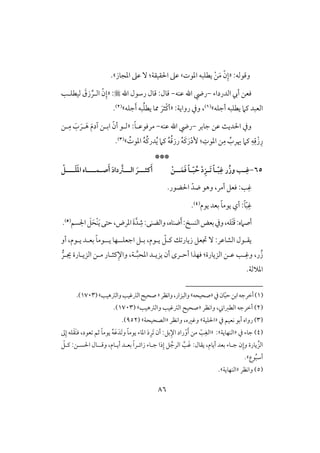 وقوله: «إِنَّ مَنْ يطلبه الموت» على الحقيقة؛ لا على المجاز».
فعن أبي الدرداء -رضي الله عنه- قال: قال رسول الله ﷺ: «إِنَّ الرِّزْقَ ليطلب
العبد كما يطلبه أجله»(١)، وفي رواية: «أَكْثَر مما يطلُبه أجله»(٢).
وفي الحديث عن جابر -رضي الله عنه- مرفوعاً: «لو أنَّ ابن آدم هَرَبَ مِن
رِزْقِهِ كما يهربُ مِن الموتِ؛ لأَدْرَكَهُ رِزْقُه كما يُدرِكُهُ الموتُ»(٣).
***
٦٥- غِب وزُر غِبّاً تَزِدْ حُبّاً فَمَنْ أَكْثَرَ التَّردادَ أَصماه المَلَلْ
غِب: فعل أمر، وهو ضدّ الحضور.
غِبّاً: أي يوماً بعد يوم(٤).
أصماه: قَتَلَه، وفي بعض النسخ: أضناه، والضنى: شِدَّةُ المرض، حتى يَنْحَلَ الجسم(٥).
يقول الشاعر: لا تجعل زيارتك كلّ يوم، بل اجعلها يوماً بعد يوم، أو
زُر، وغِب عن الزيارة؛ فهذا أحرى أن يزيد المحبَّة، والإكثار من الزيارة يجرُّ
الملالة.
(١) أخرجه ابن حبّان في «صحيحه» والبزار، وانظر «صحيح الترغيب والترهيب» (١٧٠٣).
(٢) أخرجه الطبراني، وانظر «صحيح الترغيب والترهيب» (١٧٠٣).
(٣) رواه أبو نعيم في «الحلية» وغيره، وانظر «الصحيحة» (٩٥٢).
(٤) جاء في «النهاية»: «الغِبّ من أَوْراد الإبل: أن تَرِدَ الماء يوماً وتَدَعَهُ يوماً ثم تعود، فَنَقَله إلى
الزِّيارة وإن جاء بعد أيام، يقال: غَبَّ الرجُل إذا جاء زائراً بعد أيام، وقال الحسن: كلّ
أسبُوع».
(٥) وانظر «النهاية».
٨٦